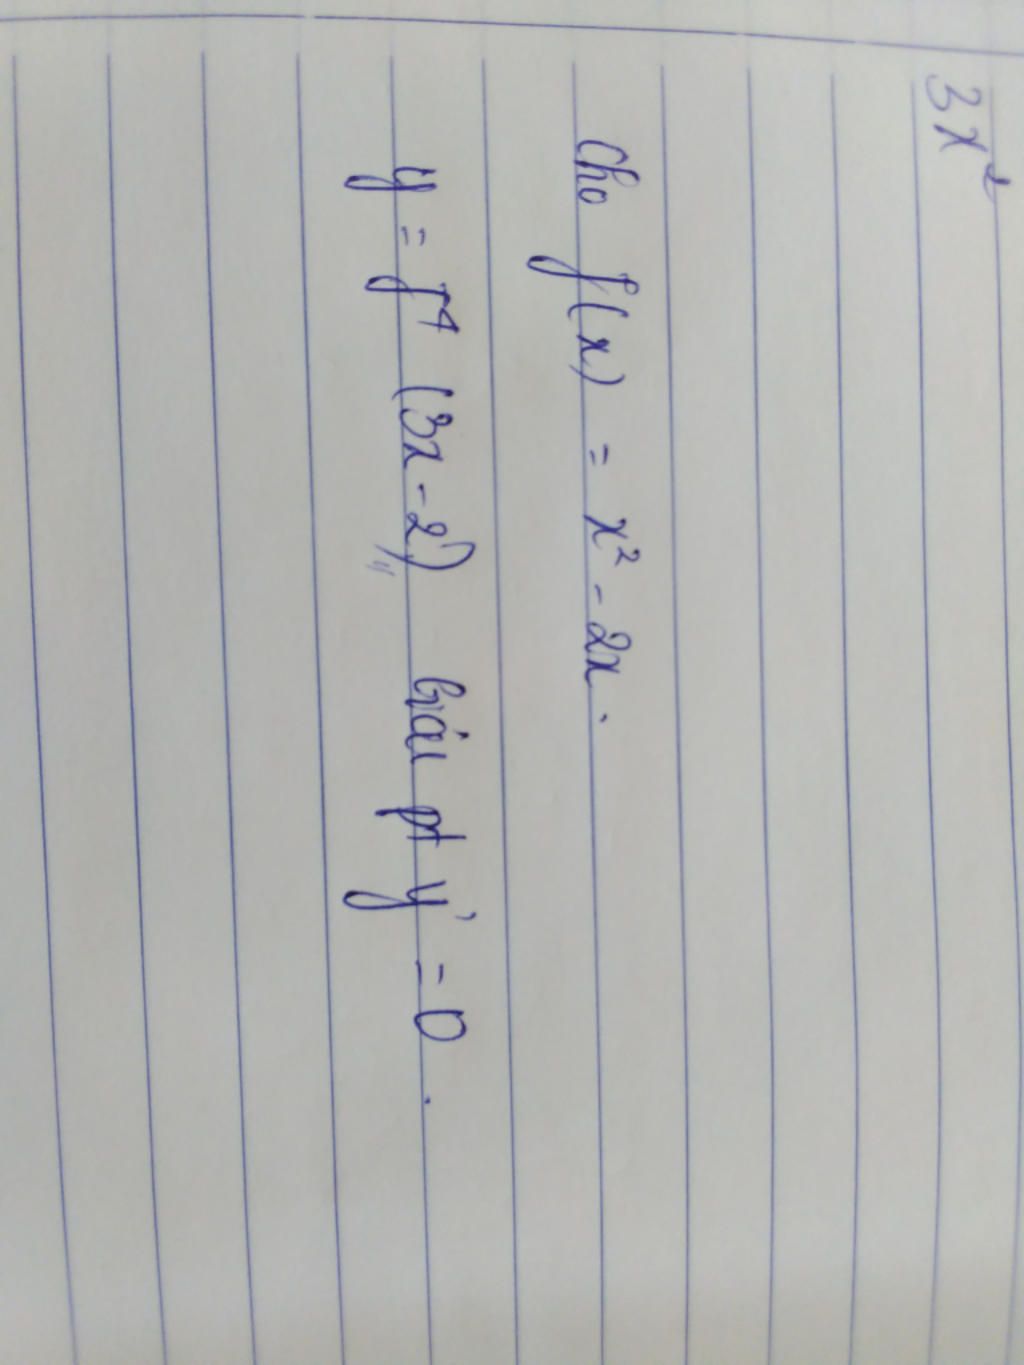 3x²
Cho f(x) = x² - 2x.
y = f⁴ (3x - 2) Giải pt y' = 0.